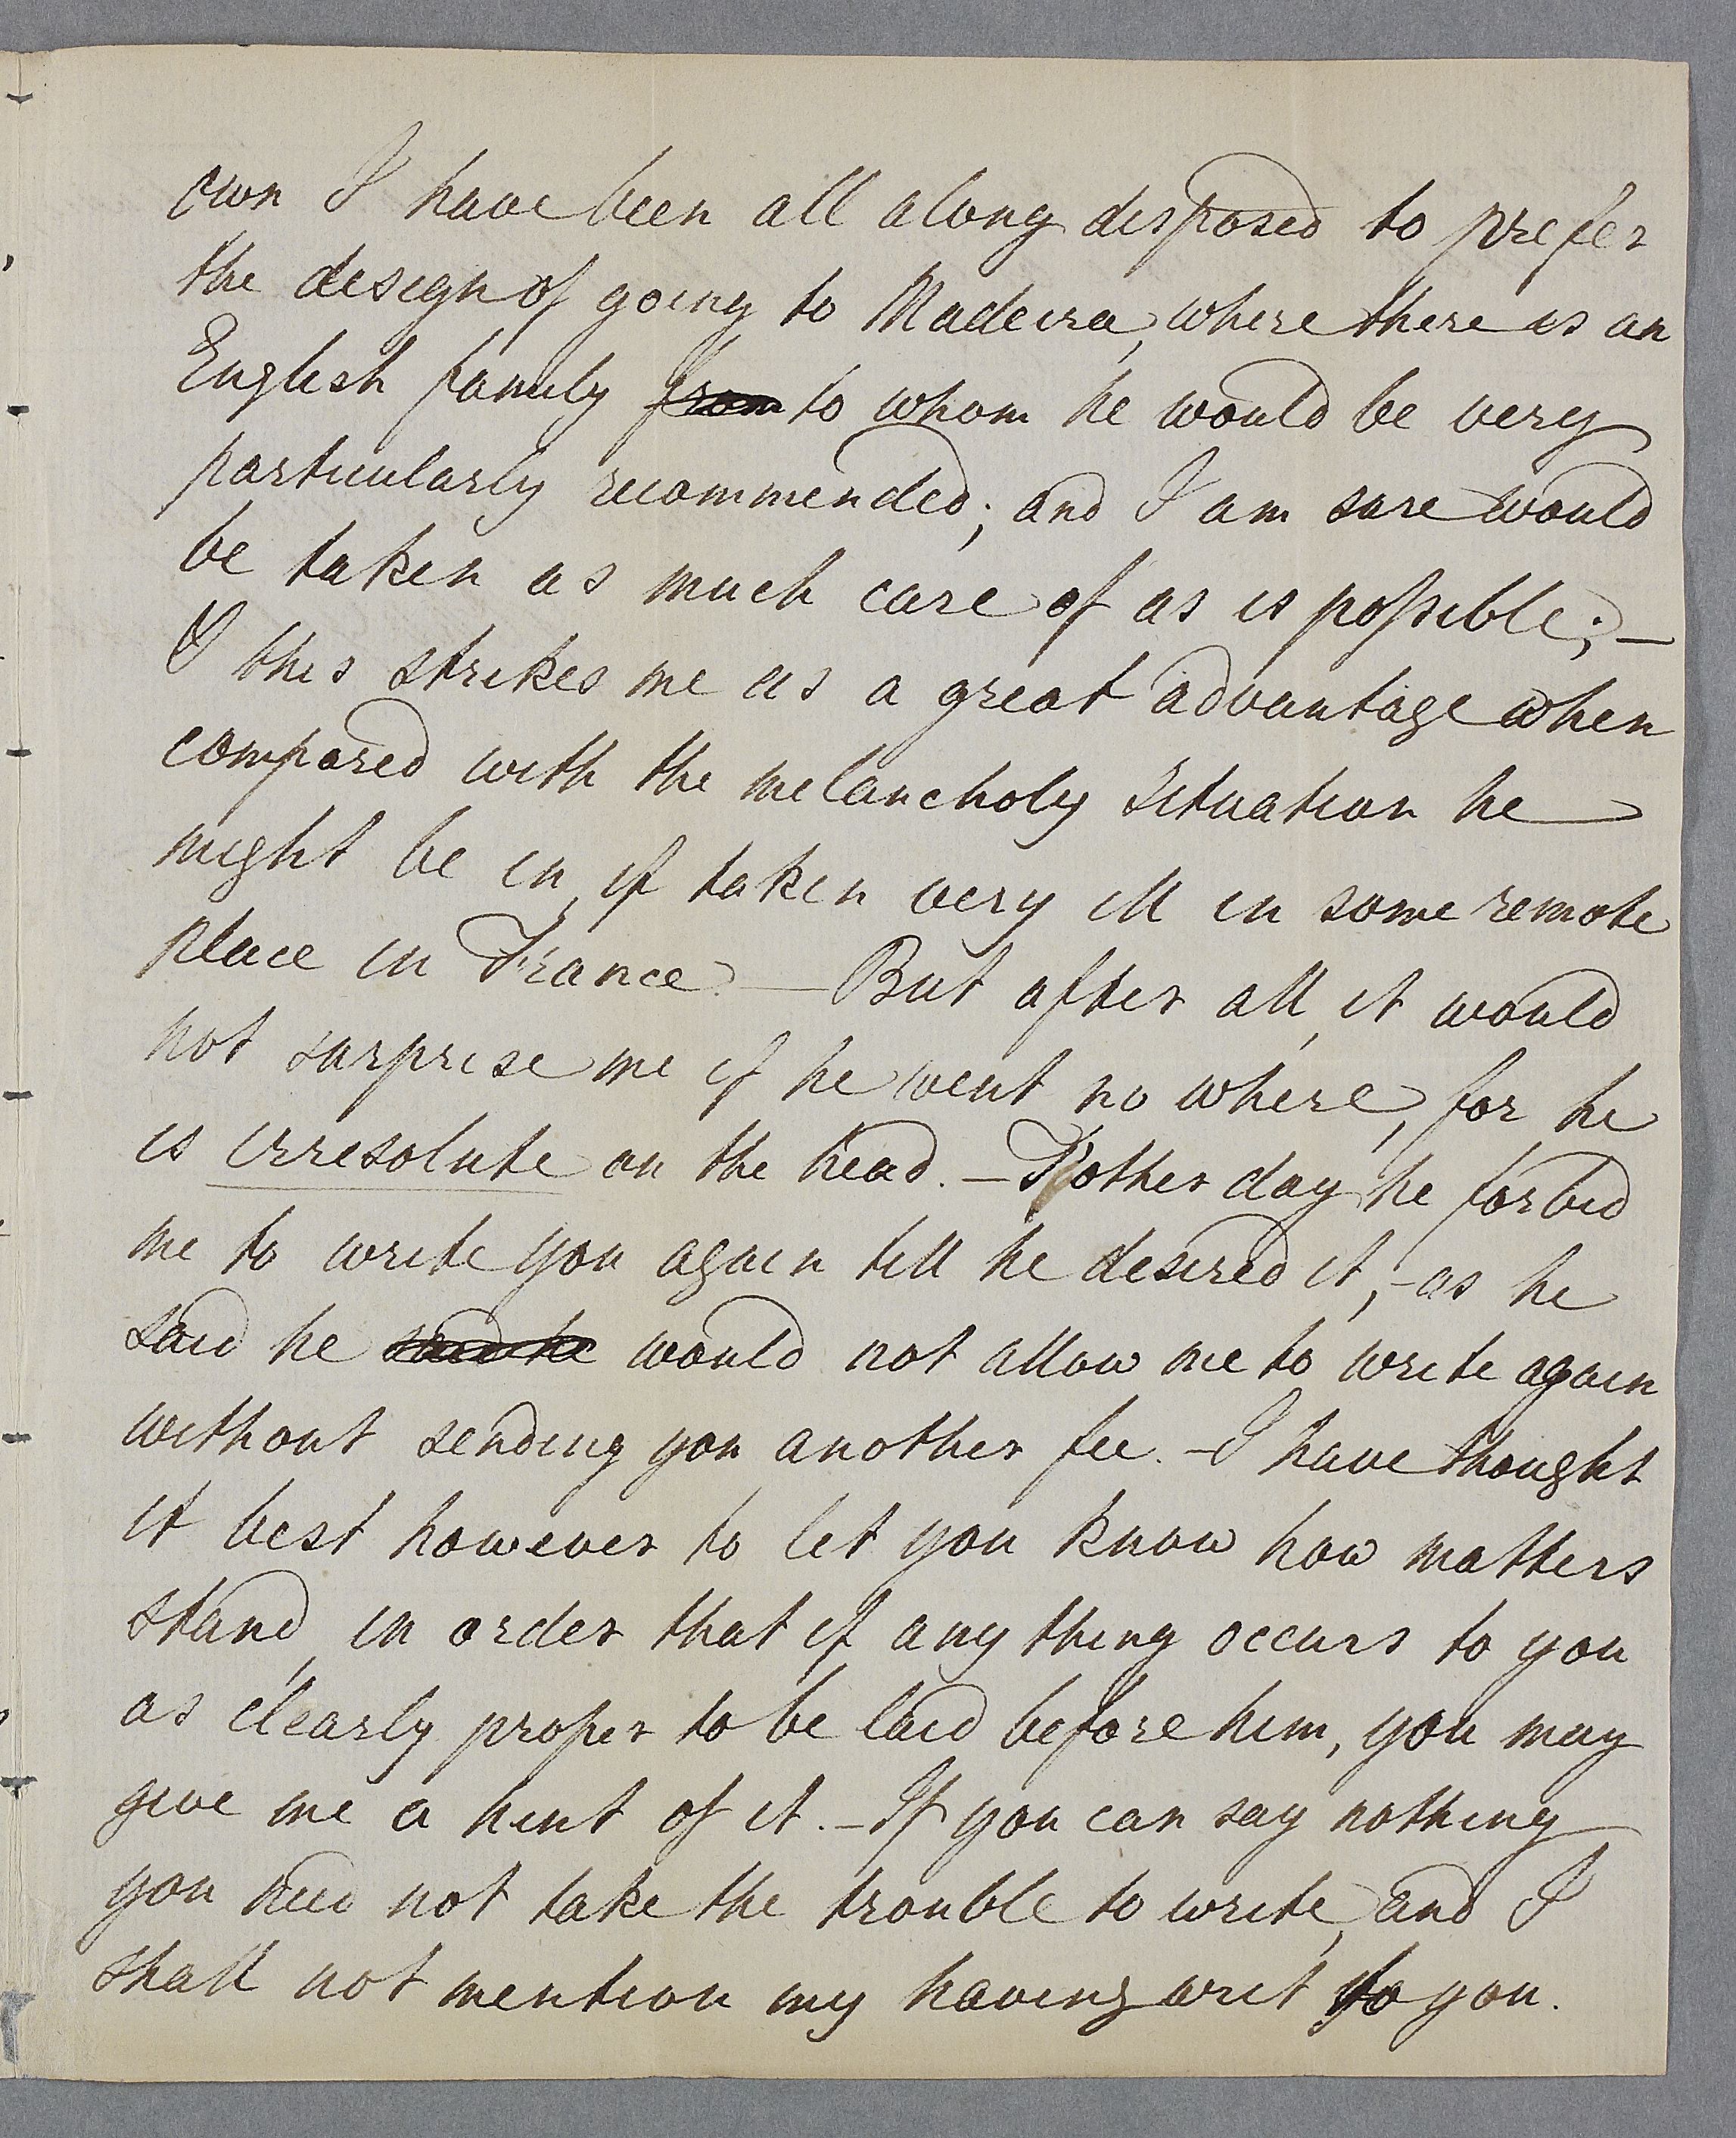 own I have been all along disposed to prefer
the design of going to Madeira, where there is an
English family from to whom he would be very
particularly recommended; and I am sure would
be taken as much care of as is poſsible; —
& this strikes me as a great advantage when
compared with the melancholy situation he
might be in, if taken very ill in some remote
place in France. — But after all, it would
not surprise me if he went no where, for he
is irresolute on the head. — T'other day he forbid
me to write you again till he desired it, - as he
said he said he would not allow me to write again
without sending you another fee. - I have thought
it best however to let you know how matters
stand, in order that if any thing occurs to you
as clearly proper to be laid before him, you may
give me a hint of it. - If you can say nothing
you need not take the trouble to write, and I
shall not mention my having writ to you.